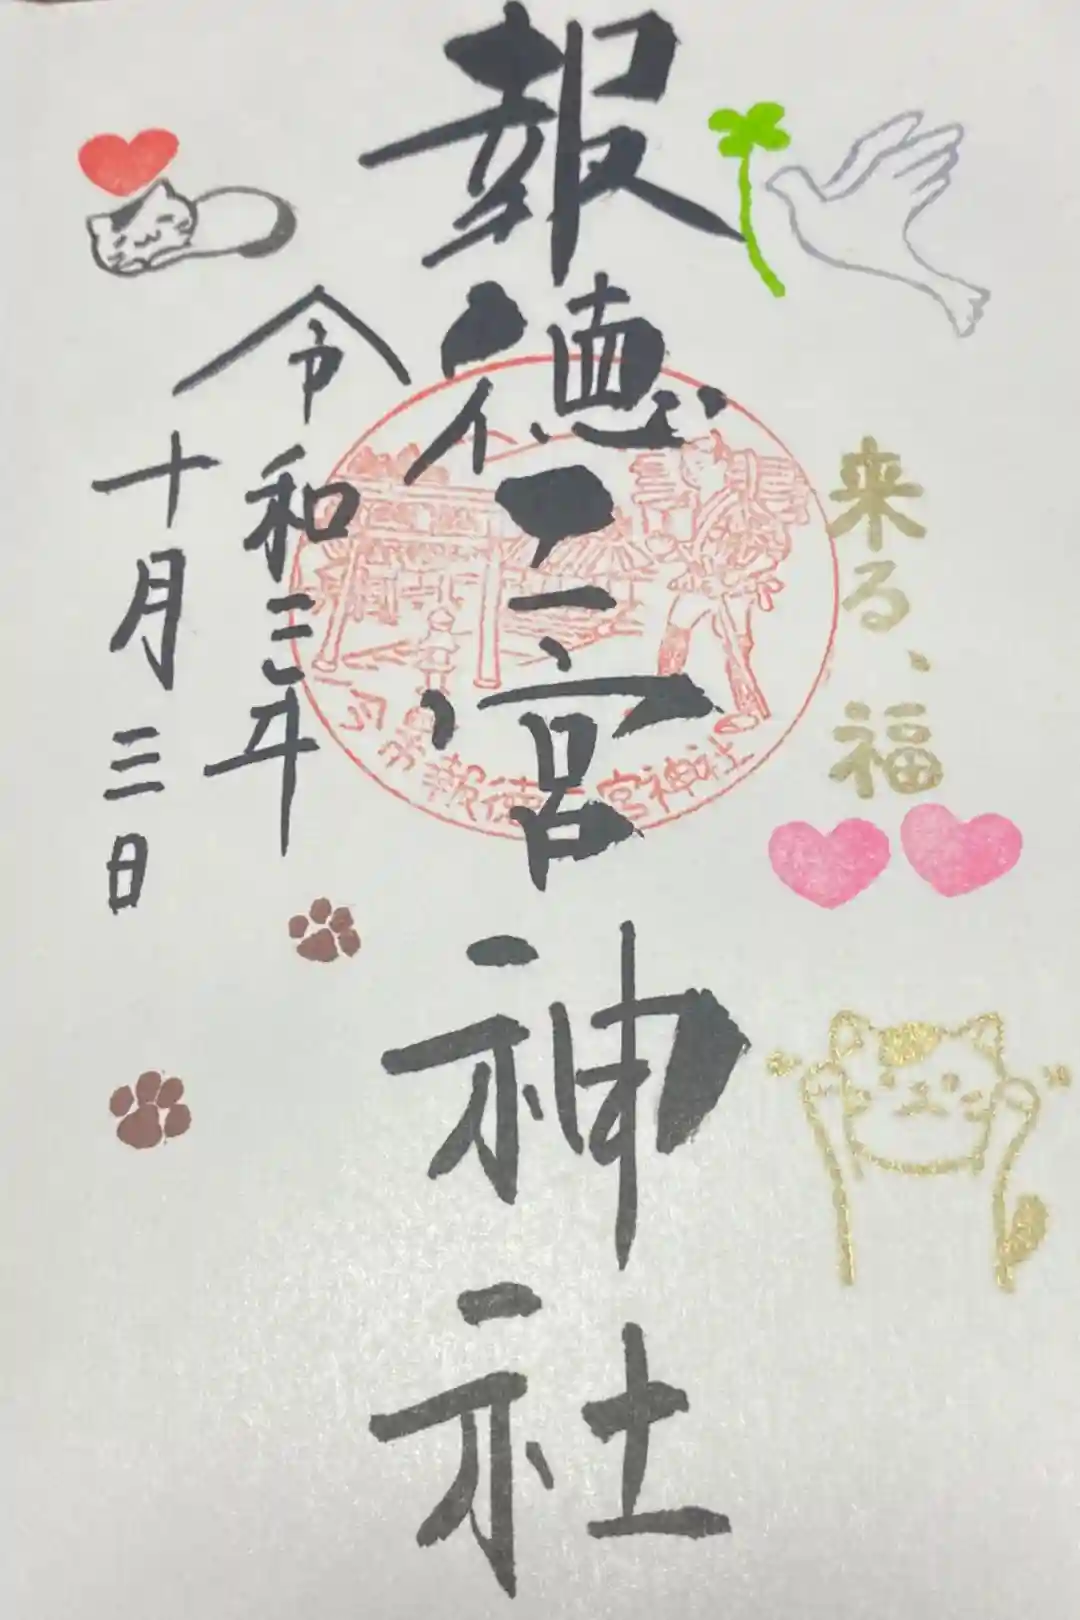 来る、福
報徳二宮神社
令和三年
十月三日
報徳二宮神社